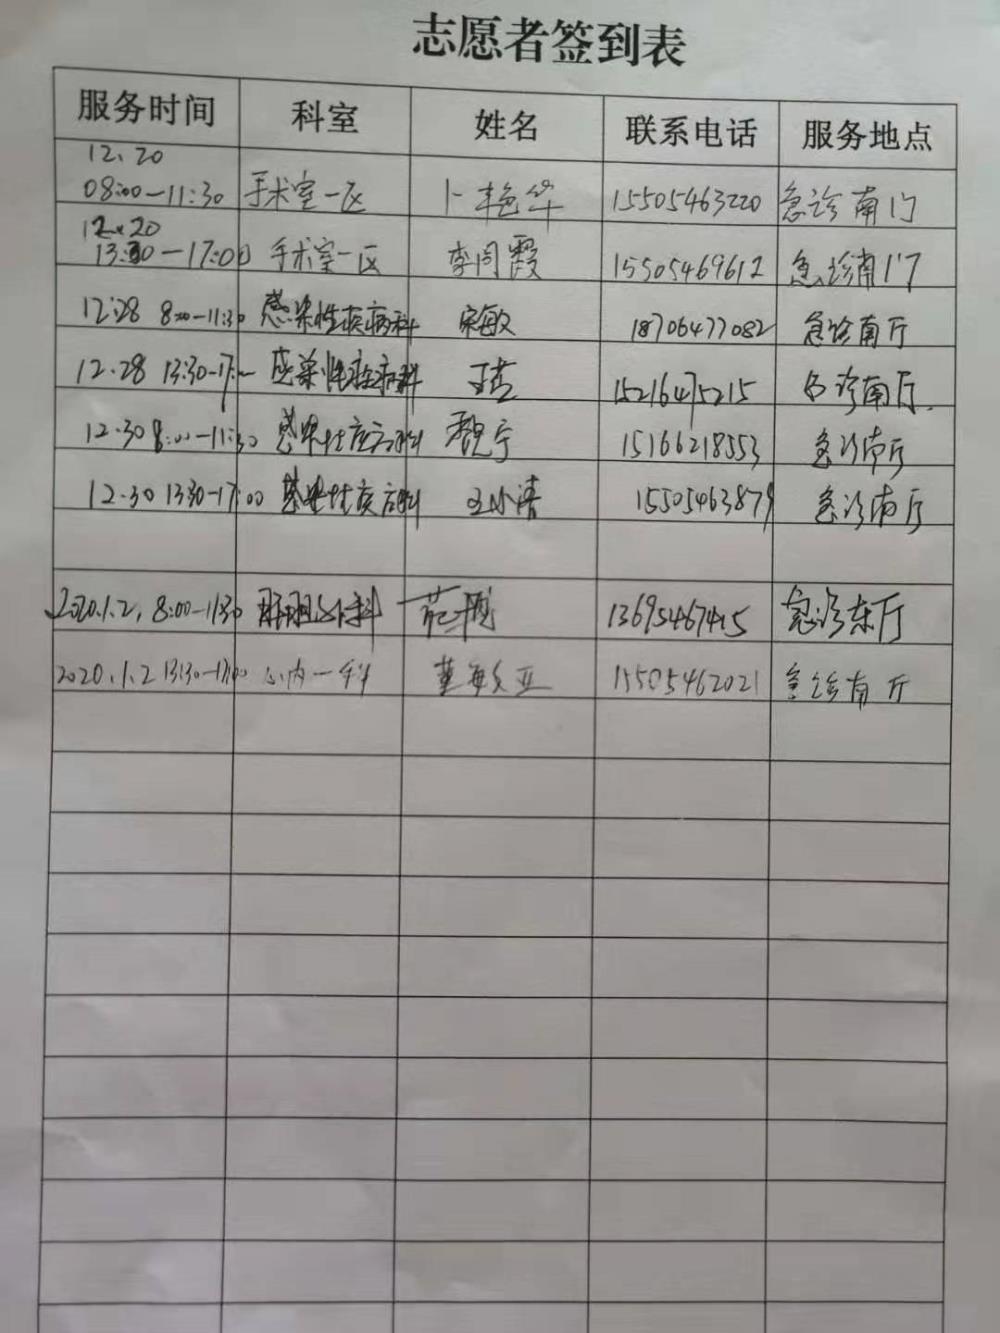 志愿者签到表
服务时间 科室 姓名 联系电话 服务地点
12.20
08:00—11:30 手术室一区 卜艳华 15505463220 急诊南门
12.20
13:30—17:00 手术室一区 李同霞 15505469612 急诊南门
12.28 8:00—11:30 感染性疾病科 宋敏 18706477082 急诊南厅
12.28 13:30-17: 感染性疾病科 15216475215 急诊南厅
12.30 8:00—11:30 感染性疾病科 魏宁 15166218553 急诊南厅
12.30 13:30-17:00 感染性疾病科 王小清 15505463879 急诊南厅
2020.1.2. 8:00—11:30 肝胆外科 范 13695467415 急诊东厅
2020.1.2 13:30-17:00 心内一科 董 亚 15505462021 急诊南厅